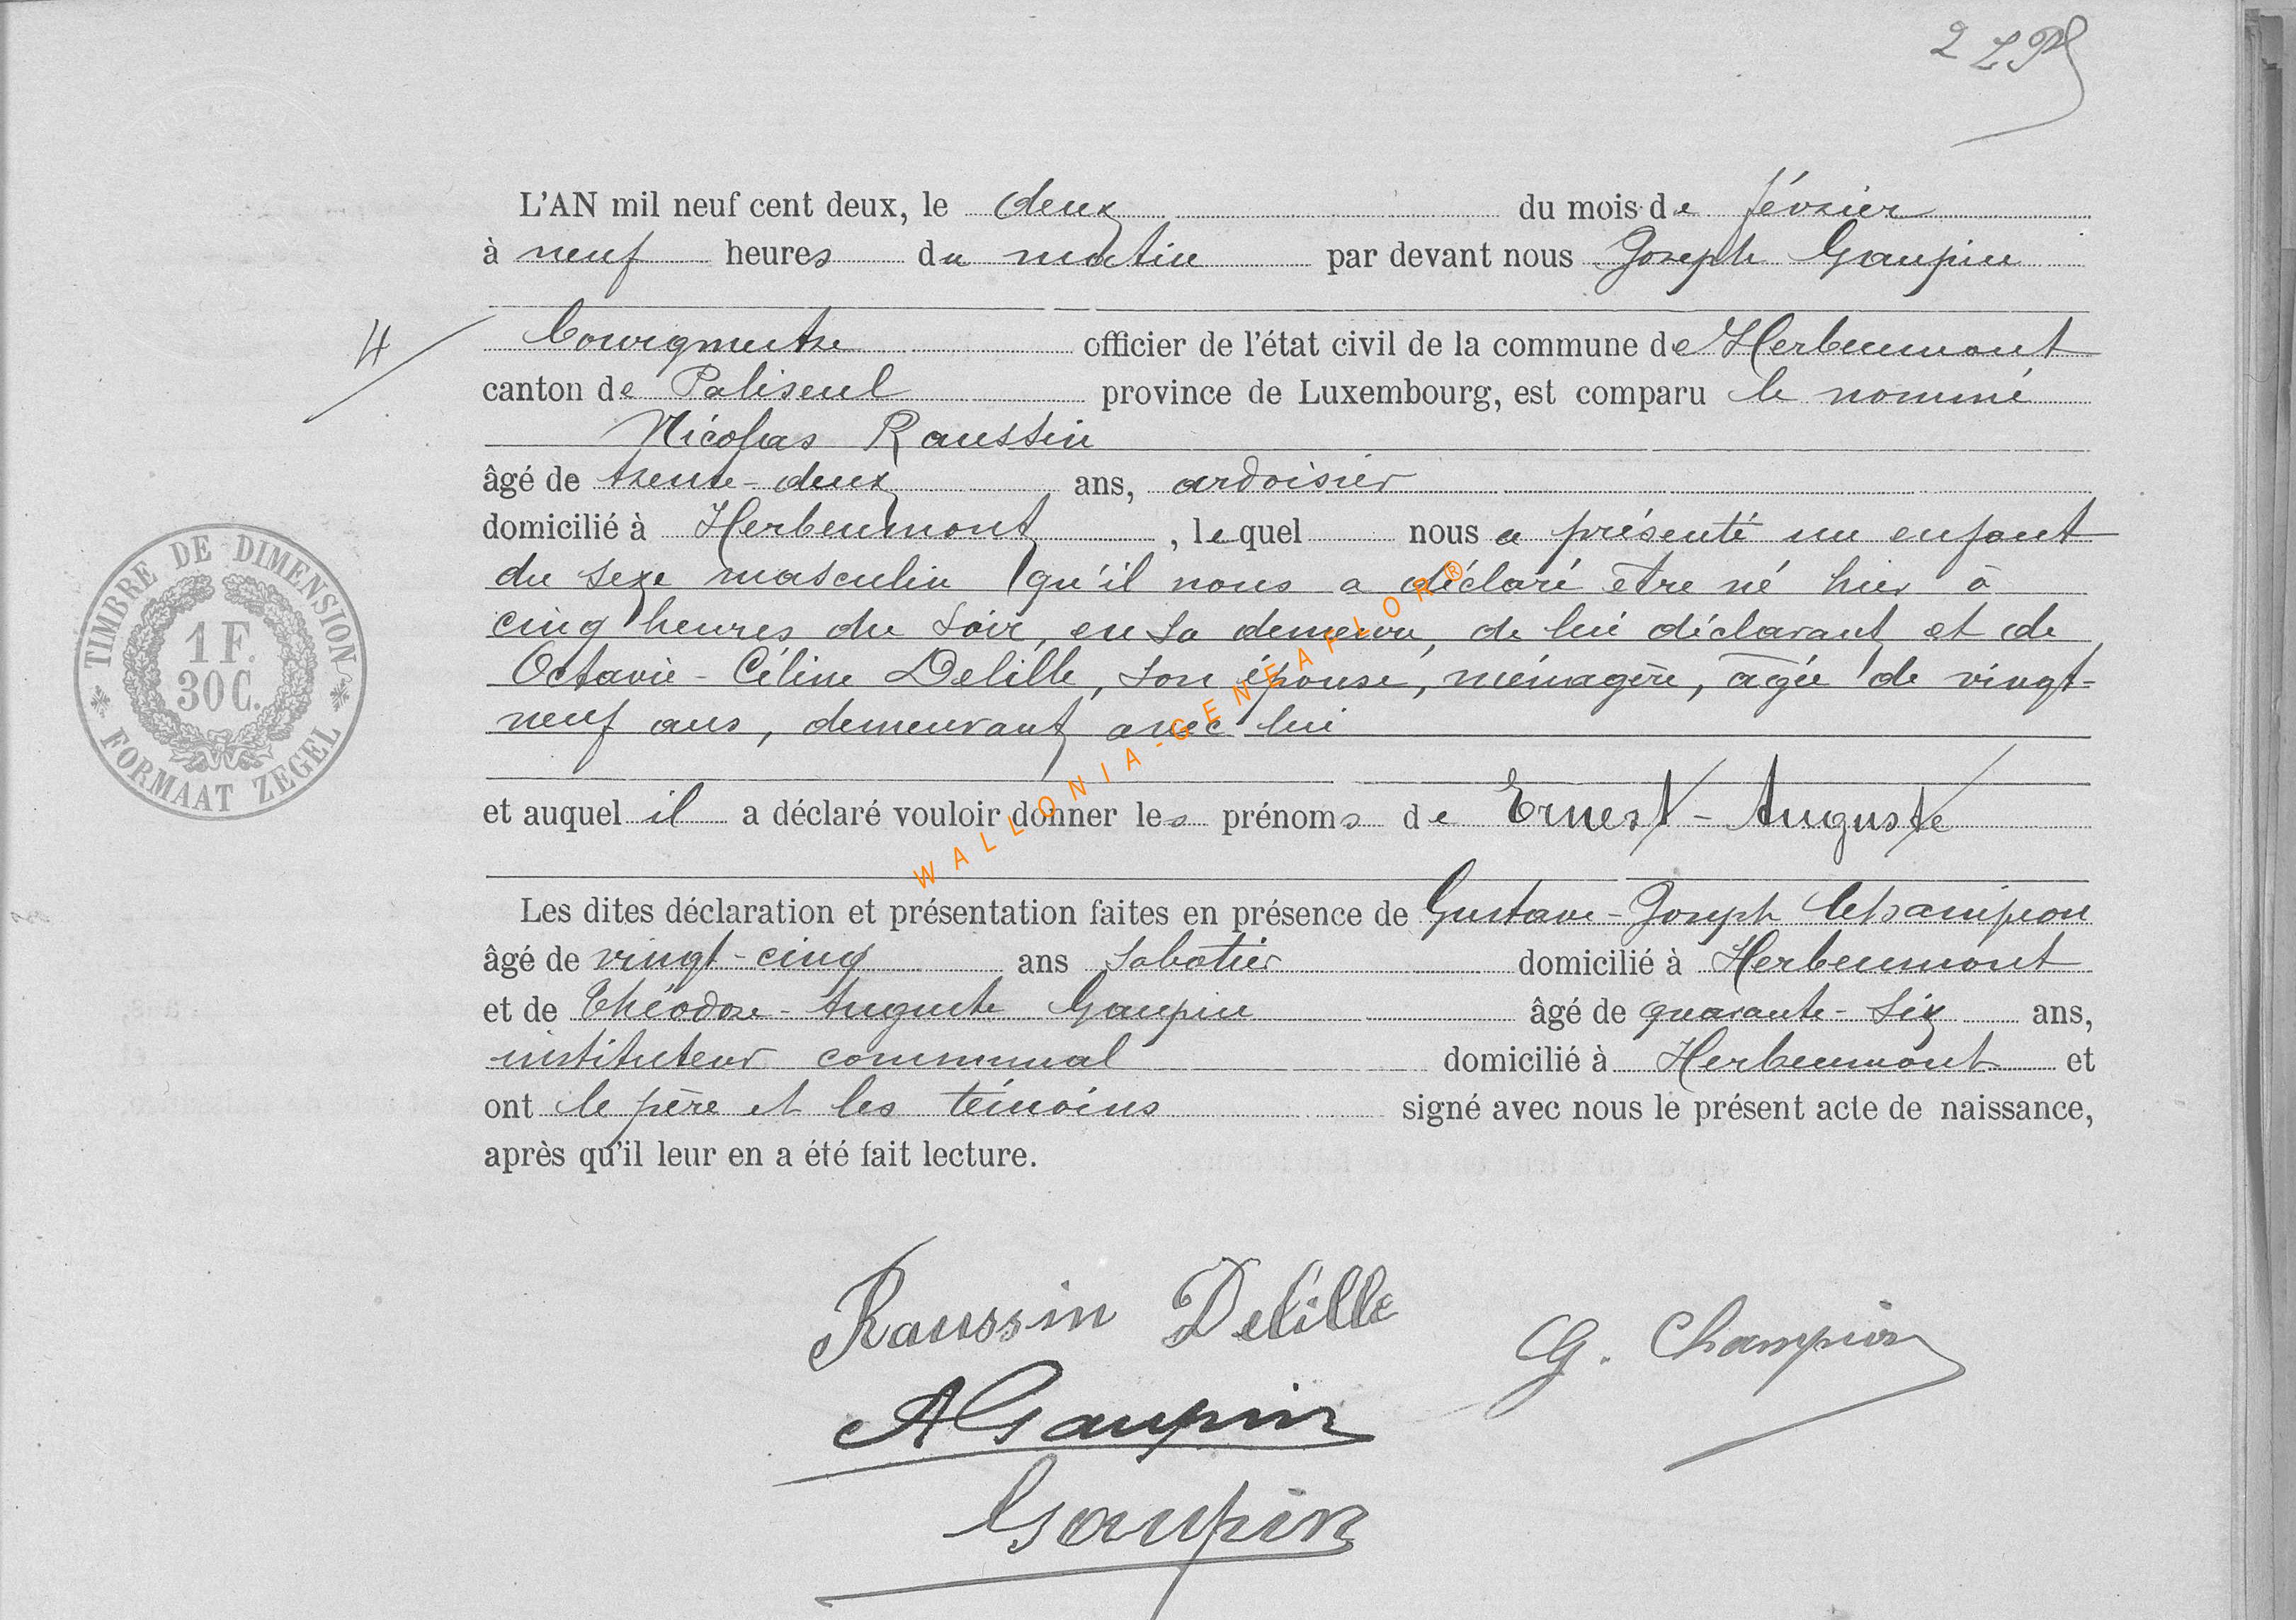 2
L'AN mil neuf cent deux, le deux du mois de février
à neuf heures du matin par devant nous Joseph Gaupin
4
bourgmestre officier de l'état civil de la commune de Herbeumont
canton de Paliseul province de Luxembourg, est comparu le nommé
Nicolas Raussin
âgé de trente-deux ans, ardoisier
domicilié à Herbeumont, lequel nous a présenté un enfant
du sexe masculin qu'il nous a déclaré être né hier à
cinq heures du soir, en sa demeure, de lui déclarant et de
Octavie-Céline Delille, son épouse, ménagère, âgée de vingt-
neuf ans, demeurant avec lui
et auquel il a déclaré vouloir donner les prénoms de Ernest-Auguste
Les dites déclaration et présentation faites en présence de Gustave-Joseph Champion
âgé de vingt-cinq ans sabotier domicilié à Herbeumont
et de Théodore-Auguste Gaupin âgé de quarante-six ans,
instituteur communal domicilié à Herbeumont et
ont le père et les témoins signé avec nous le présent acte de naissance,
après qu'il leur en a été fait lecture.
Raussin Delille
G. Champion
A Gaupin
Gaupin
TIMBRE DE DIMENSION
1 F.
30 C.
FORMAAT ZEGEL
WALLONIA-GENEAFLOR®